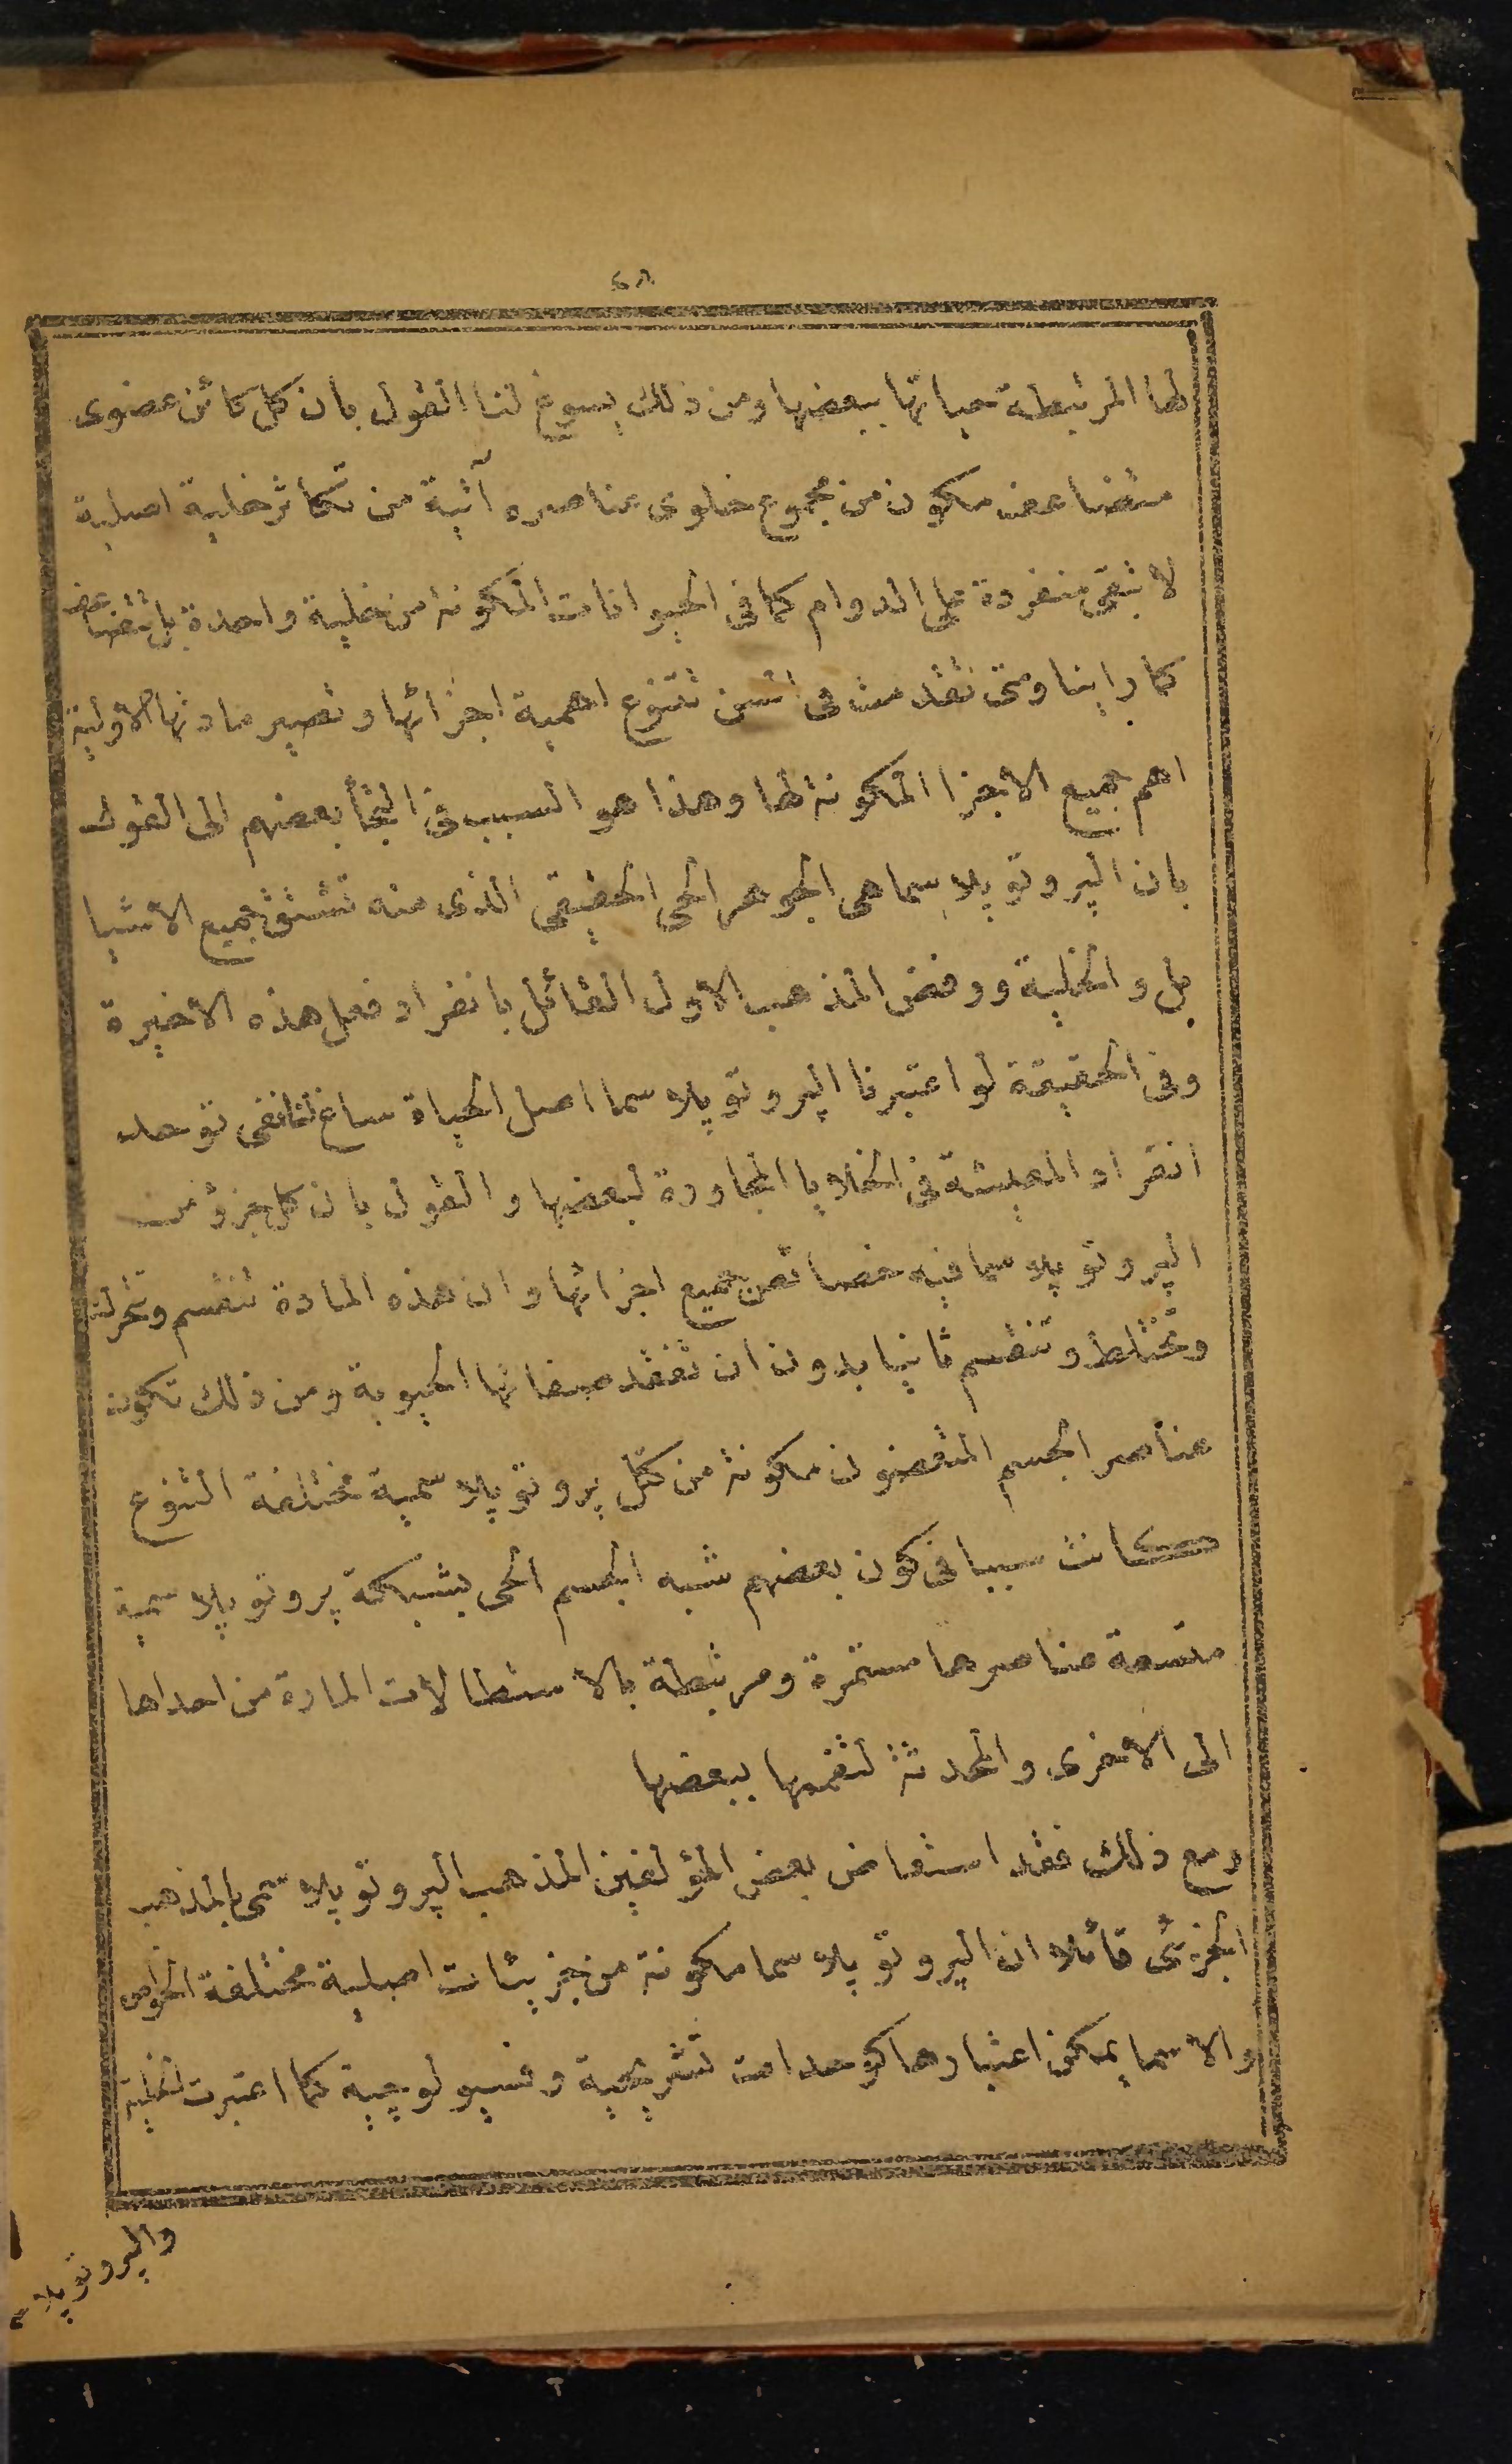 ٤٨
لها المرتبطة حياتها ببعضها ومن ذلك يسوغ لنا القول بان كل كائن عضوى
متضاعف مكون من مجموع خلوى عناصره آتية من تكاثر خلية اصلية
لا تبقى منفردة على الدوام كما فى الحيوانات المكونة من خلية واحدة بل تتضاعف
كما راينا ومتى تقدمت فى السن تتنوع اهمية اجزائها وتصير مادتها الاولية
اهم جميع الاجزا المكونة لها وهذا هو السبب فى التجأ بعضهم الى القول
بان البروتوپلاسما هى الجوهر الحى الحقيقى الذى منه تشتق جميع الاشيا
بل والخلية ورفض المذهب الاول القائل بانفراد فعل هذه الاخيرة
وفى الحقيقة لو اعتبرنا البروتوپلاسما اصل الحياة ساغ لنا نفى توحد
انفراد المعيشة فى الخلايا المجاورة لبعضها والقول بان كل جزؤ من
البروتوپلاسما فيه خصائص جميع اجزائها وان هذه المادة تنقسم وتتحرك
وتختلط وتنقسم ثانيا بدون ان تفقد صفاتها الحيوية ومن ذلك تكون
عناصر الجسم المتعضون مكونة من كتل بروتوپلاسمية مختلفة التنوع
كانت سببا فى كون بعضهم شبه الجسم الحى بشبكة بروتوپلاسمية
متسعة عناصرها مستمرة ومرتبطة بالاستطالات المارة من احداها
الى الاخرى والمحدثة لتضمها ببعضها
ومع ذلك فقد استعاض بعض المؤلفين المذهب البروتوپلاسمى بالمذهب
الجزئى قائلا ان البروتوپلاسما مكونة من جزيئات اصلية مختلفة الخواص
والاسما يمكن اعتبارها كوحدات تشريحية وفسيولوجية كما اعتبرت الخلية
والبروتوپلاسما